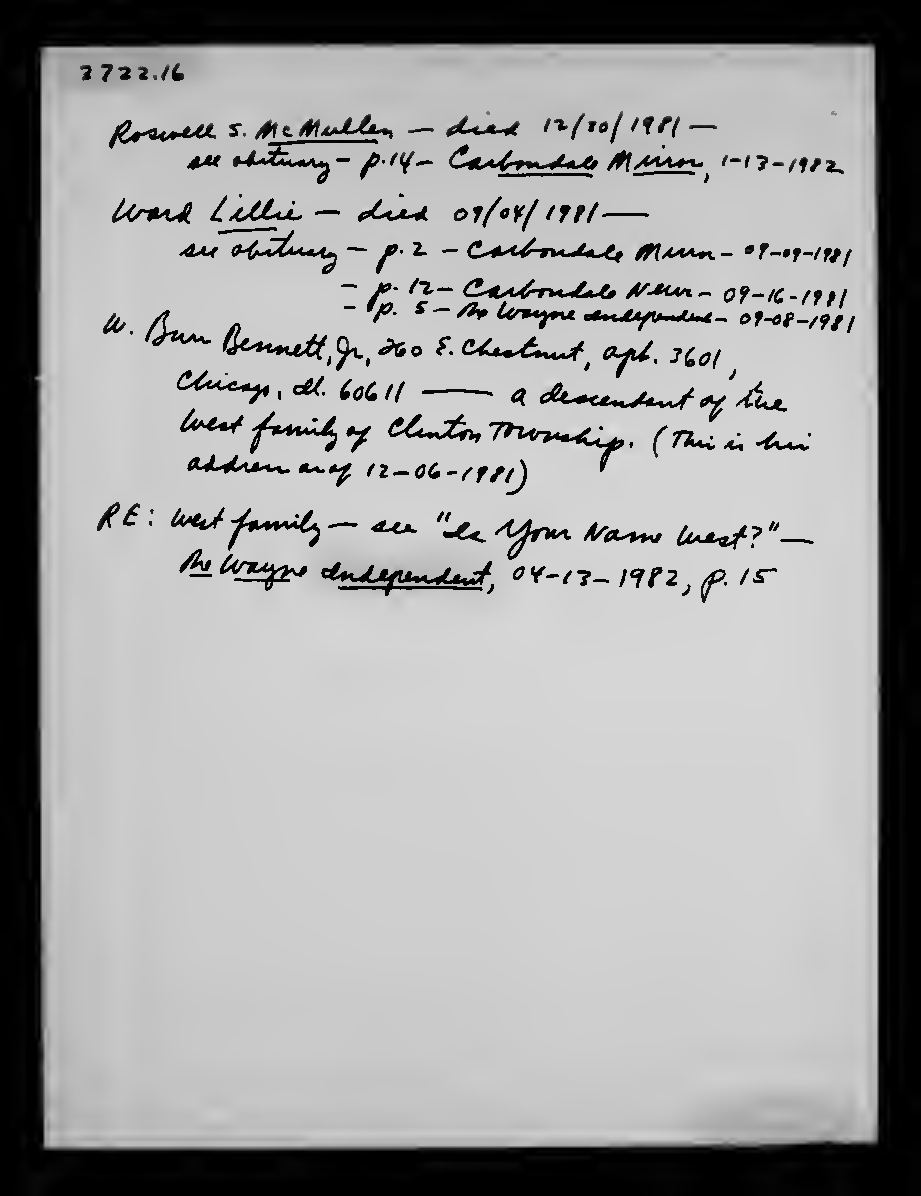 2722.16
Roswell S. McMullen — died 12/30/1981 —
see obituary - p.14 - Carbondale Mirror, 1-13-1982
Ward Lillie — died 09/04/1981 —
see obituary - p. 2 - Carbondale Mirror - 09-09-1981
- p. 12 - Carbondale News - 09-16-1981
- p. 5 - The Wayne Independent - 09-08-1981
W. Burr Bennett, Jr., 260 E. Chestnut, apt. 3601,
Chicago, Il. 60611 — a descendant of the
West family of Clinton Township. (This is his
address as of 12-06-1981)
RE: West family — see "Is Your Name West?" —
The Wayne Independent, 04-13-1982, p. 15